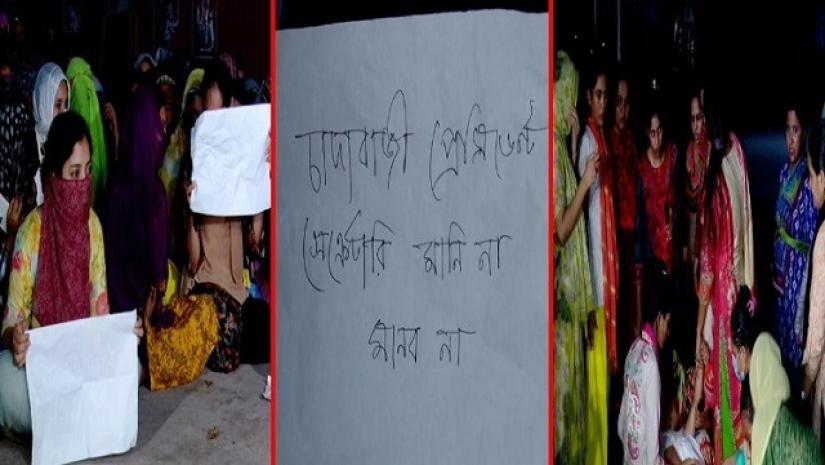 চাদাবাজী প্রেসিডেন্ট
সেক্রেটারি মানি না
মানব না